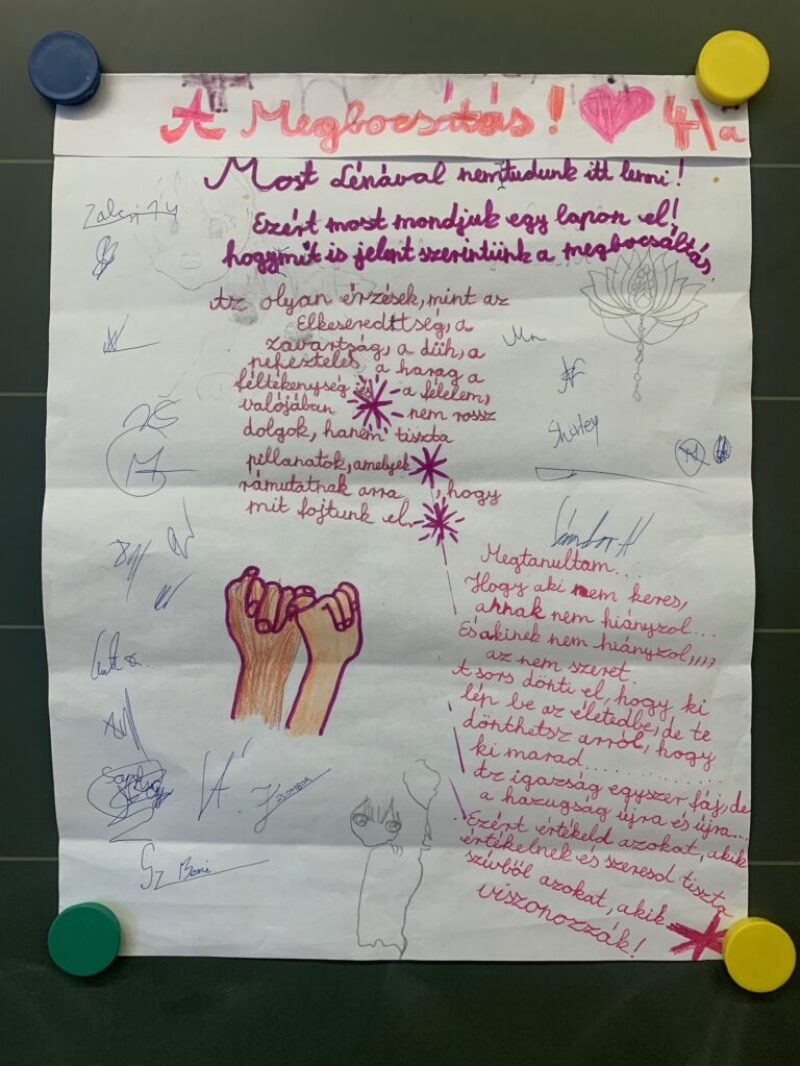 A Megbocsátás! 4/a
Most Lénával nemtudunk itt lenni!
Ezért most mondjuk egy lapon el!
hogymit is jelent szerintünk a megbocsáltás,
Az olyan érzések, mint az
Elkeseredttség, a
zavartság, a düh, a
a harag a
féltékenység és a félelem,
valójában nem rossz
dolgok, hanem tiszta
pillanatok, amelyek
rámutatnak arra, hogy
mit fojtunk el.
Shirley
Sándor H
Megtanultam...
Hogy aki nem keres,
annak nem hiányzol...
És akinek nem hiányzol,,,,
az nem szeret.
A sors dönti el, hogy ki
lép be az életedbe, de te
dönthetsz arról, hogy
ki marad..............
Az igazság egyszer fáj, de
a hazugság újra és újra....
Ezért értékeld azokat, akik
értékelnek és szeresd tiszta
szívből azokat, akik
viszonozzák!
Sz Boni